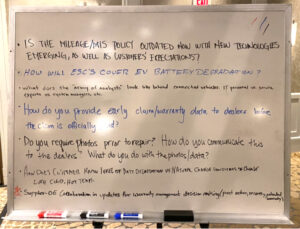 • IS THE MILEAGE/MIS POLICY OUTDATED NOW WITH NEW TECHNOLOGIES
EMERGING, AS WELL AS CUSTOMERS' EXPECTATIONS?
• HOW WILL ESC'S COVER EV BATTERY DEGRADATION?
• What does the "army of analysts" look like behind connected vehicles. IT personnel vs service
experts vs system managers, etc.
• How do you provide early claim/warranty data to dealers before
the claim is officially paid?
• Do you require photos prior to repair? How do you communicate this
to the dealers? What do you do with the photos/data?
• How Does Customer Know Level of Data
• Supplier-OE Collaboration in updates for warranty management decision making